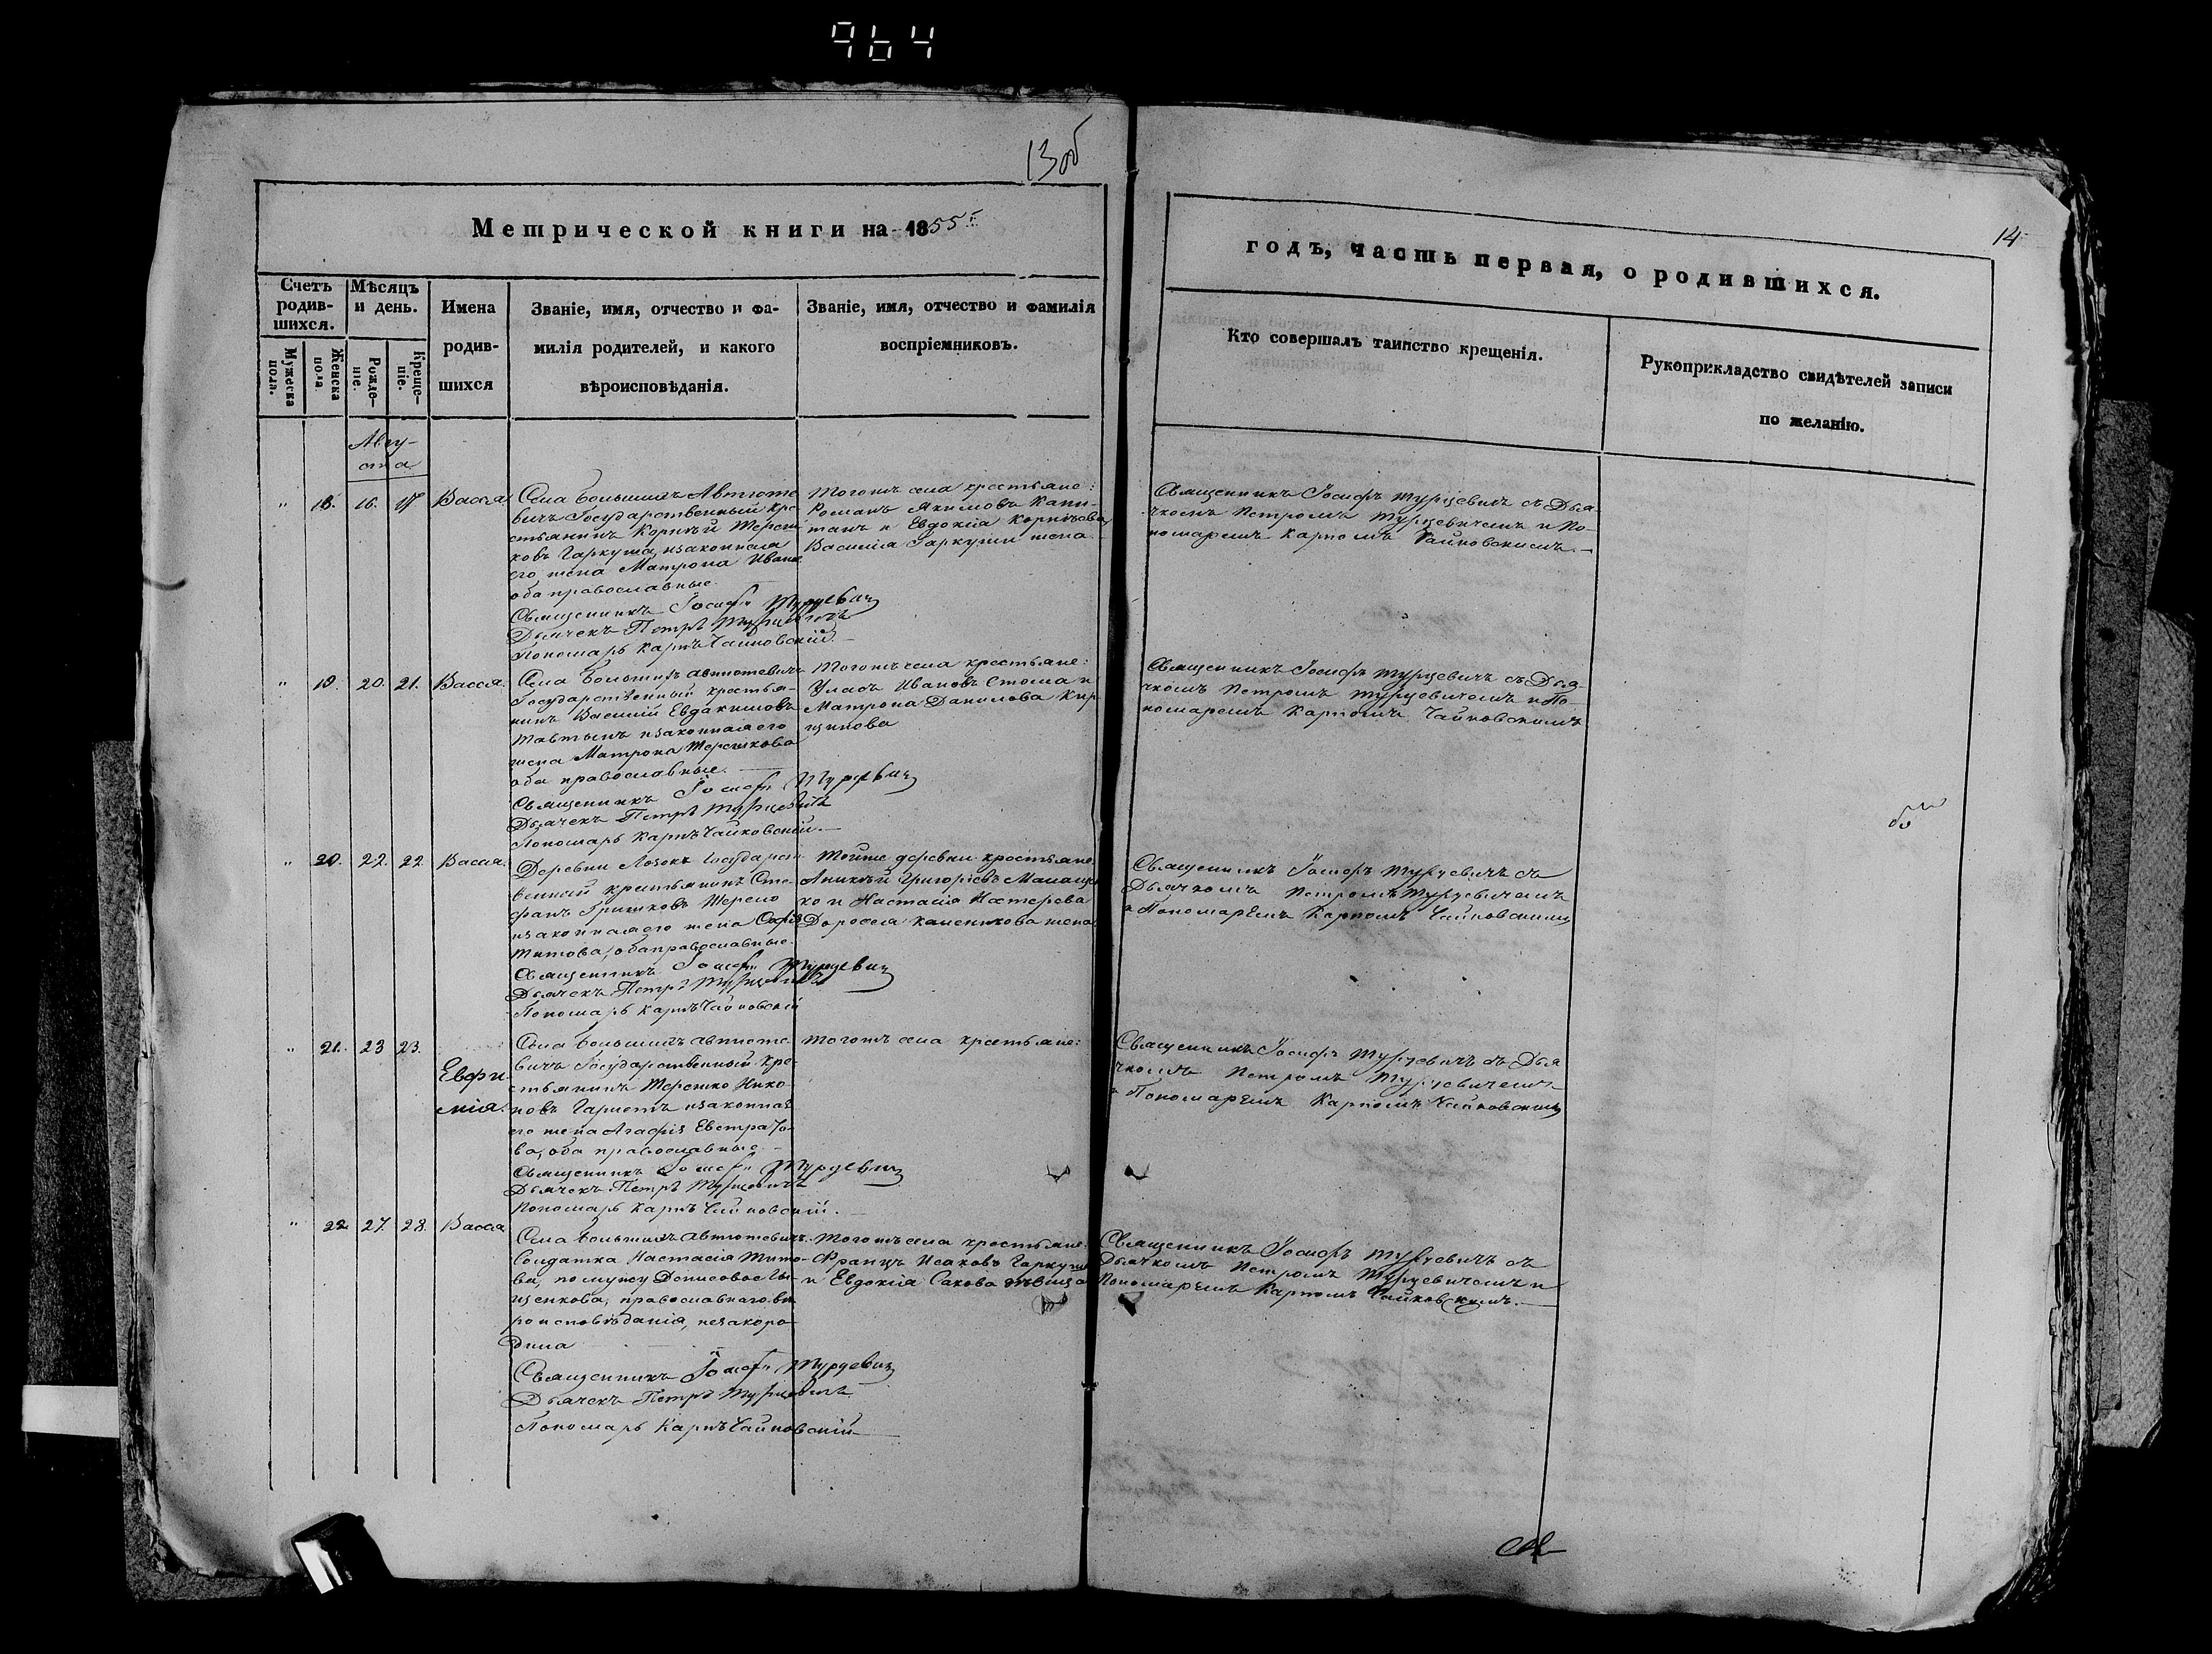 964
13 об
Метрической книги на 1855й
Счетъ родившихся.
Мужеска пола.
Женска пола.
Мѣсяцъ и день.
Рожденіе.
Крещеніе.
Имена родившихся
Званіе, имя, отчество и фамилія родителей, и какого вѣроисповѣданія.
Званіе, имя, отчество и фамилія воспріемниковъ.
14
годъ, часть первая, о родившихся.
Кто совершалъ таинство крещенія.
Рукоприкладство свидѣтелей записи по желанію.
Авгу-
ста
" 18. 16. 17 Васса
Села Большихъ Автюте
вичъ Государственный кре
стьянинъ Корнѣй Тереш
ковъ Гаркуша, изаконная
его жена Матрона Ивана
оба православные.
Священникъ Іосифъ Турцевич
Дьячекъ Петръ Турцевичъ
Пономарь Карпъ Чайковскій.
Тогожъ села крестьяне:
Романъ Якимовъ Капи-
танъ и Евдокія Корнѣева
Василія Гаркуши жена
Священникъ Іосифъ Турцевичъ съ Дья-
чкомъ Петромъ Турцевичемъ и По-
номаремъ Карпомъ Чайковскимъ.
" 19. 20. 21. Васса.
Села Большихъ Автютевичъ
Государственный крестья-
нинъ Василій Евдакимовъ
изаконная его
жена Матрона Терешкова
оба православные.
Священникъ Іосифъ Турцевич
Дьячекъ Петръ Турцевичъ
Пономарь Карпъ Чайковскій.
Тогожъ села крестьяне:
Уласъ Ивановъ Стома и
Матрона Данилова Кир
Священникъ Іосифъ Турцевичъ съ Дья-
чкомъ Петромъ Турцевичемъ и По-
номаремъ Карпомъ Чайковскимъ
" 20. 22. 22 Васса.
Деревни Лозокъ Государст
венный крестьянинъ Сте-
фанъ Гришковъ
изаконная его жена
Титова, оба православные.
Священникъ Іосифъ Турцевич
Дьячекъ Петръ Турцевичъ
Пономарь Карпъ Чайковскій
Тойже деревни крестьяне
Аникѣй Григорьевъ
ко и Настасія Нестерова
жена
Священникъ Іосифъ Турцевичъ съ
Дьячкомъ Петромъ Турцевичемъ
и Пономаремъ Карпомъ Чайковскимъ
" 21. 23 23.
Евфи-
мія.
Села Большихъ Автюте
вичъ Государственный кре-
стьянинъ Терешко Нико
новъ изаконная
его жена Агафія Евстра
ва, оба православные
Священникъ Іосифъ Турцевич
Дьячекъ Петръ Турцевичъ
Пономарь Карпъ Чайковскій.
Тогожъ села крестьяне:
Священникъ Іосифъ Турцевичъ съ Дья
чкомъ Петромъ Турцевичемъ
и Пономаремъ Карпомъ Чайковскимъ
" 22 27. 28. Васса
Села Большихъ Автютевичъ
Солдатка Настасія Тито-
ва, по мужу Денисова
православнаго вѣ
роисповѣданія, незакоро
дила
Священникъ Іосифъ Турцевич
Дьячекъ Петръ Турцевичъ
Пономарь Карпъ Чайковскій
Тогожъ села крестьяне
Францъ Исаковъ Гаркуша
и Евдокія Сакова дѣвица
Священникъ Іосифъ Турцевичъ съ
Дьячкомъ Петромъ Турцевичемъ и
Пономаремъ Карпомъ Чайковскимъ.